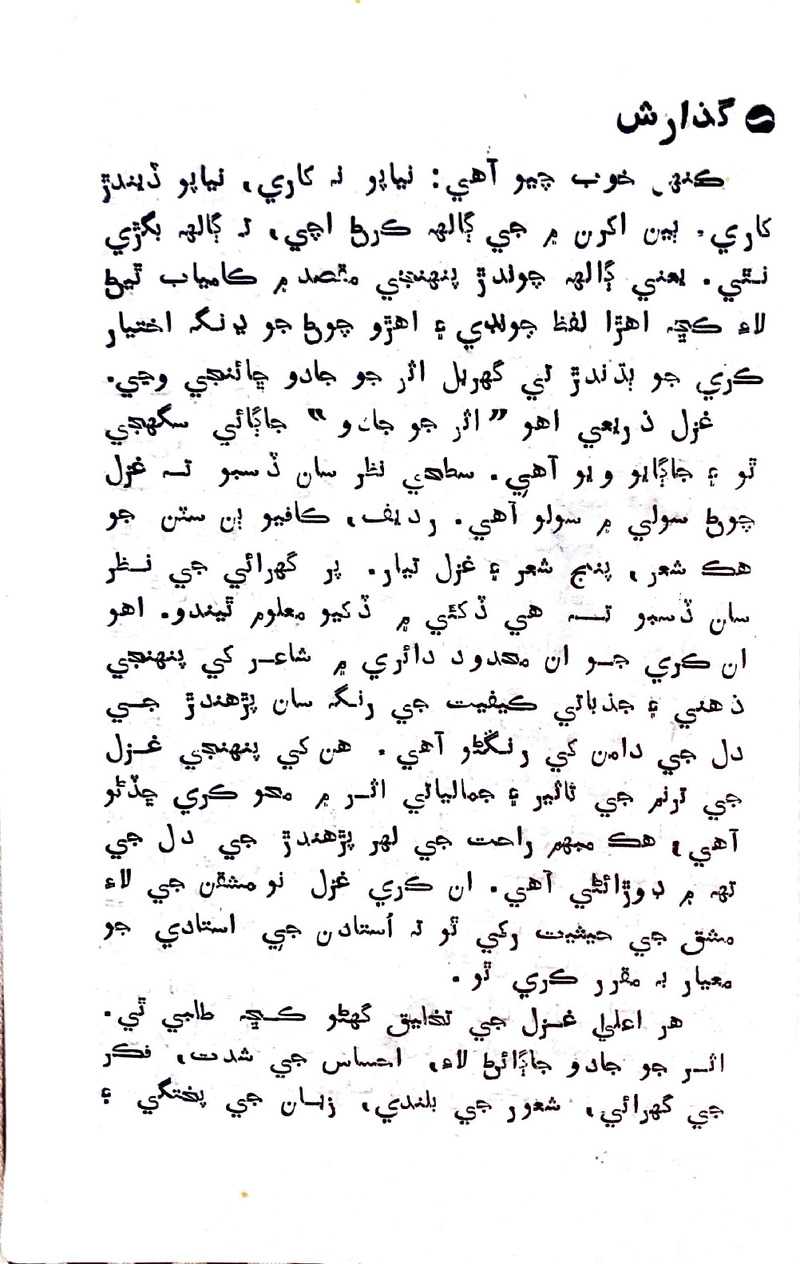 گذارش
ڪنهن خوب چيو آهي: نياپو نہ ڪاري، نياپو ڏيندڙ
ڪاري. ٻين اکرن ۾ جي ڳالهہ ڪرڻ اچي، تہ ڳالهہ بگڙي
نٿي. يعني ڳالهہ چوندڙ پنهنجي مقصد ۾ ڪامياب ٿيڻ
لاءِ ڪڇہ اهڙا لفظ چونڊي ۽ اهڙو چوڻ جو ڍنگہ اختيار
ڪري جو ٻڌندڙ تي گهربل اثر جو جادو ڇائنجي وڃي.
غزل ذريعي اهو ”اثر جو جادو“ جاڳائي سگهجي
ٿو ۽ جاڳايو ويو آهي. سطحي نظر سان ڏسبو تہ غزل
چوڻ سولي ۾ سولو آهي. رديف، ڪافيو ٻن سٽن جو
هڪ شعر، پنج شعر ۽ غزل تيار. پر گهرائي جي نظر
سان ڏسبو تہ هي ڏکئي ۾ ڏکيو معلوم ٿيندو. اهو
ان ڪري جو ان محدود دائري ۾ شاعر کي پنهنجي
ذهني ۽ جذباتي ڪيفيت جي رنگہ سان پڙهندڙ جي
دل جي دامن کي رنگڻو آهي. هن کي پنهنجي غزل
جي ترنم جي تاثير ۽ جمالياتي اثر ۾ محو ڪري ڇڏڻو
آهي، هڪ مبهم راحت جي لهر پڙهندڙ جي دل جي
تهہ ۾ ڊوڙائڻي آهي. ان ڪري غزل نو مشقن جي لاءِ
مشق جي حيثيت رکي ٿو تہ اُستادن جي استادي جو
معيار بہ مقرر ڪري ٿو.
هر اعليٰ غزل جي تخليق گهڻو ڪڇہ طلبي ٿي.
اثر جو جادو جاڳائڻ لاءِ، احساس جي شدت، فڪر
جي گهرائي، شعور جي بلندي، زبان جي پختگي ۽